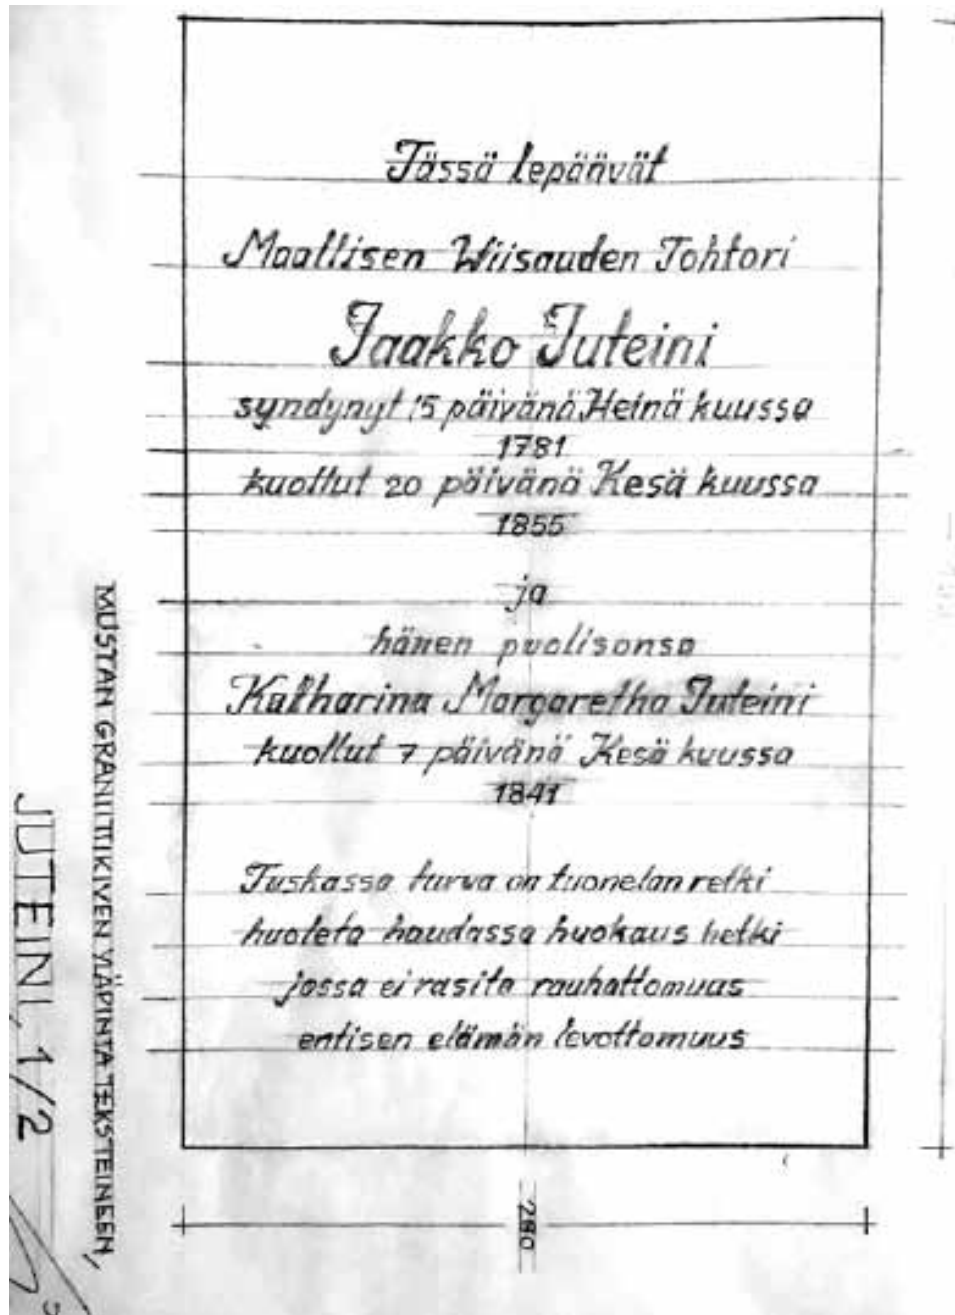 Tässä lepäävät
Maallisen Wiisauden Tohtori
Jaakko Juteini
syndynyt 15 päivänä Heinä kuussa
1781
kuollut 20 päivänä Kesä kuussa
1855
ja
hänen puolisonsa
Katharina Margaretha Juteini
kuollut 7 päivänä Kesä kuussa
1841
Tuskassa turva on tuonelan retki
huoleta haudassa huokaus hetki
jossa ei rasita rauhattomuus
entisen elämän levottomuus
280
MUSTAN GRANIITTIKIVEN YLÄPINTA TEKSTEINEEN,
JUTEINI, 1/2